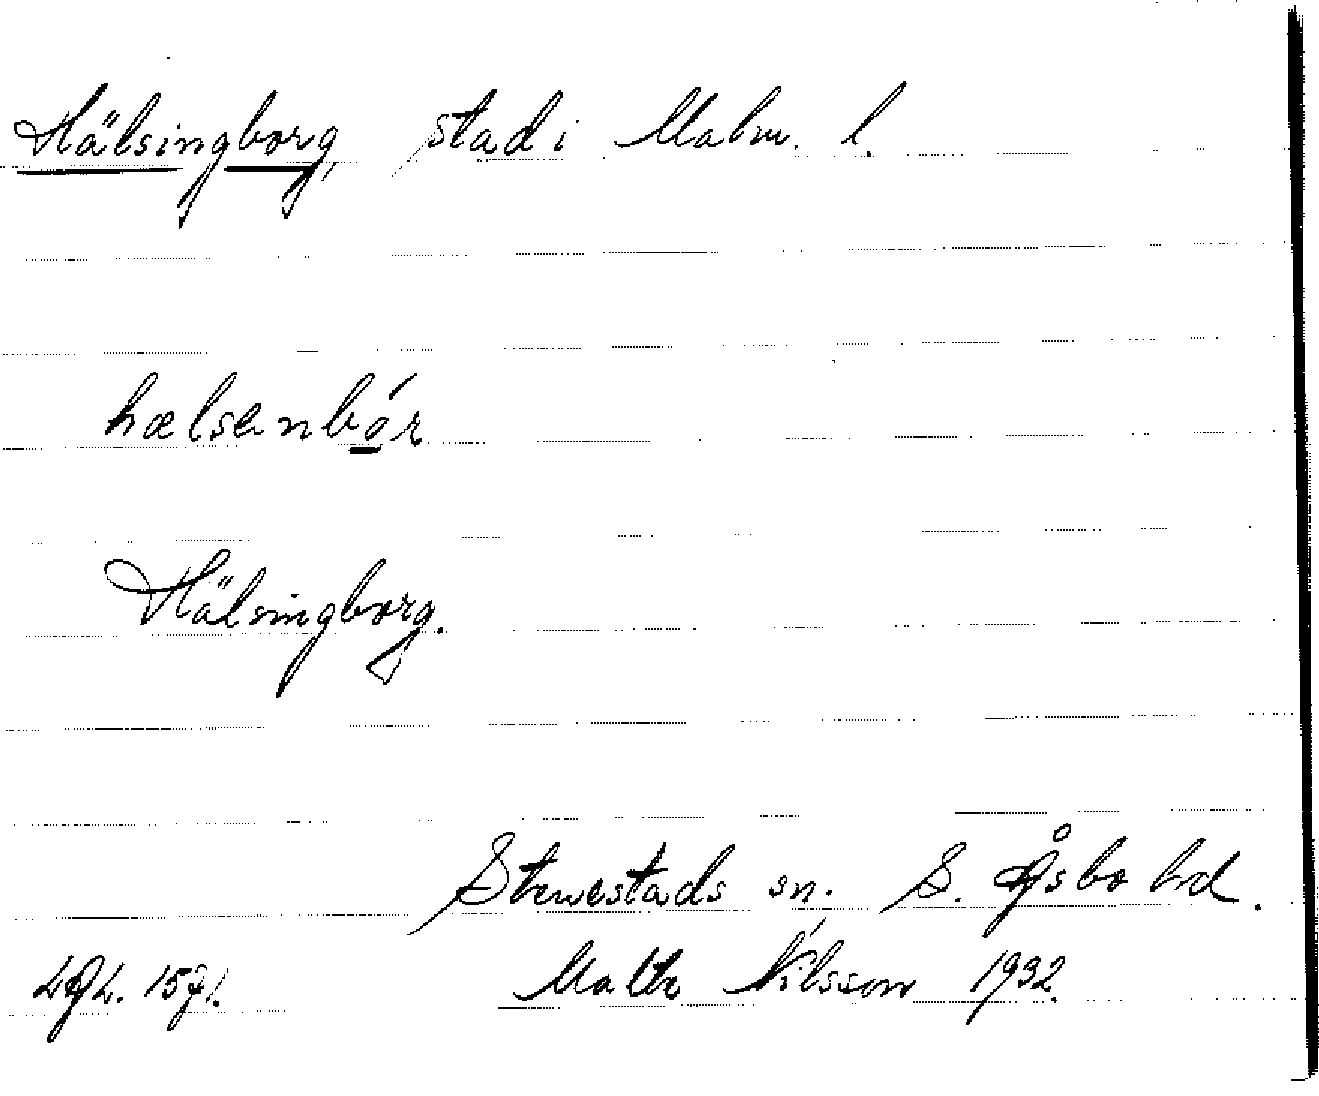 Hälsingborg, stad i Malm. l.
hælsenbór
Hälsingborg.
Strövestads sn. S. Åsbo hd.
Malte Nilsson 1932.